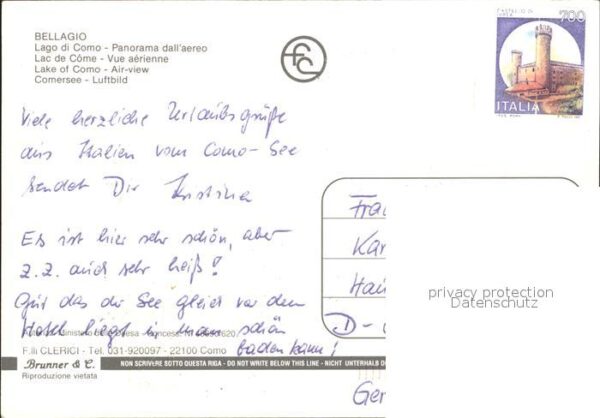 BELLAGIO
Lago di Como - Panorama dall'aereo
Lac de Côme - Vue aérienne
Lake of Como - Air-view
Comersee - Luftbild
fc
CASTELLO DI
IVREA
700
ITALIA
Viele herzliche Urlaubsgrüße
aus Italien vom Como-See
sendet Dir Kristina
Es ist hier sehr schön, aber
z.Z. auch sehr heiß!
Gut das der See gleich vor dem
Hotel liegt u. man schön
baden kann!
Frau
Kar
Hain
D-
Ger
privacy protection
Datenschutz
F.lli CLERICI - Tel. 031-920097 - 22100 Como
Brunner & C.
Riproduzione vietata
NON SCRIVERE SOTTO QUESTA RIGA - DO NOT WRITE BELOW THIS LINE - NICHT UNTERHALB D